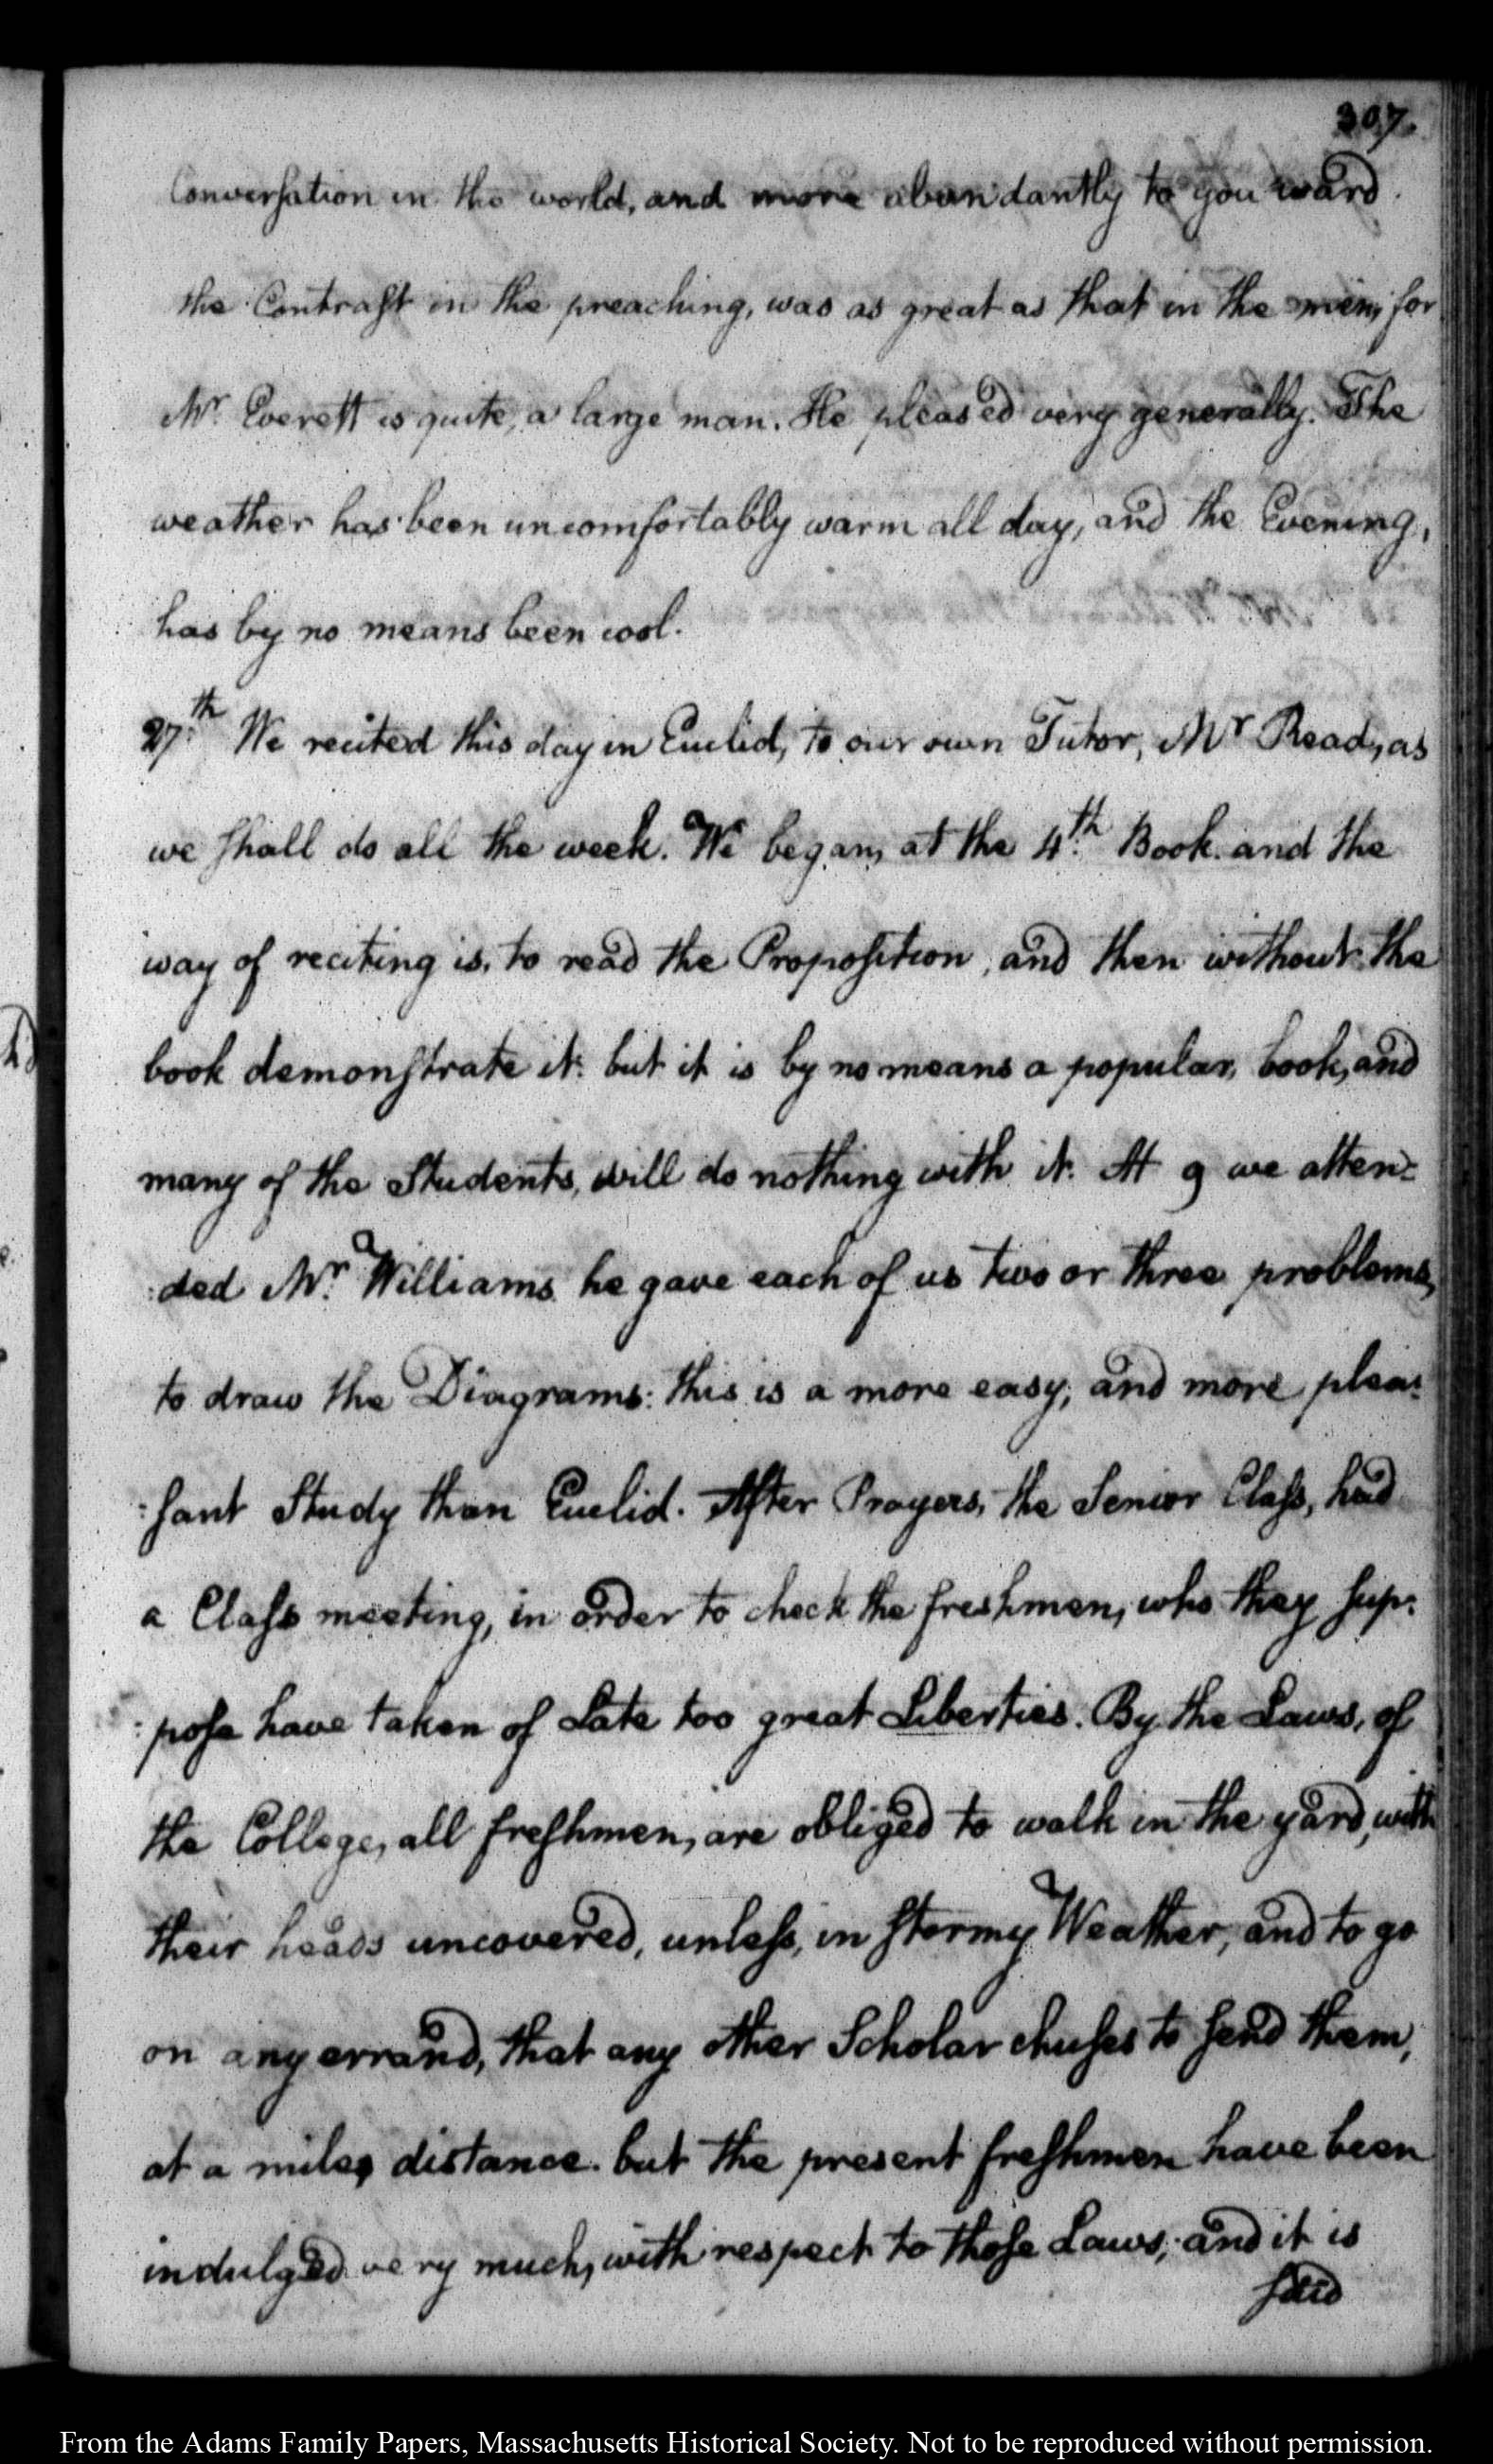 307.
Conversation in the world, and more abundantly to you ward.
the Contrast in the preaching, was as great as that in the men, for
Mr. Everett is quite, a large man. He pleased very generally. The
weather has been uncomfortably warm all day, and the Evening,
has by no means been cool.
27th. We recited this day in Euclid, to our own Tutor, Mr Read, as
we shall do all the week. We began, at the 4th. Book. and the
way of reciting is, to read the Proposition, and then without the
book demonstrate it: but it is by no means a popular, book, and
many of the Students, will do nothing with it. At 9 we atten-
ded Mr. Williams. he gave each of us two or three problems,
to draw the Diagrams: this is a more easy, and more plea-
sant Study than Euclid. After Prayers, the Senior Class, had
a Class meeting, in order to check the freshmen, who they sup-
pose have taken of Late too great Liberties. By the Laws, of
the College, all freshmen, are obliged to walk in the yard, with
their heads uncovered, unless, in stormy Weather, and to go
on any errand, that any other Scholar chuses to send them,
at a miles distance. but the present freshmen have been
indulged very much, with respect to those Laws; and it is
said
From the Adams Family Papers, Massachusetts Historical Society. Not to be reproduced without permission.